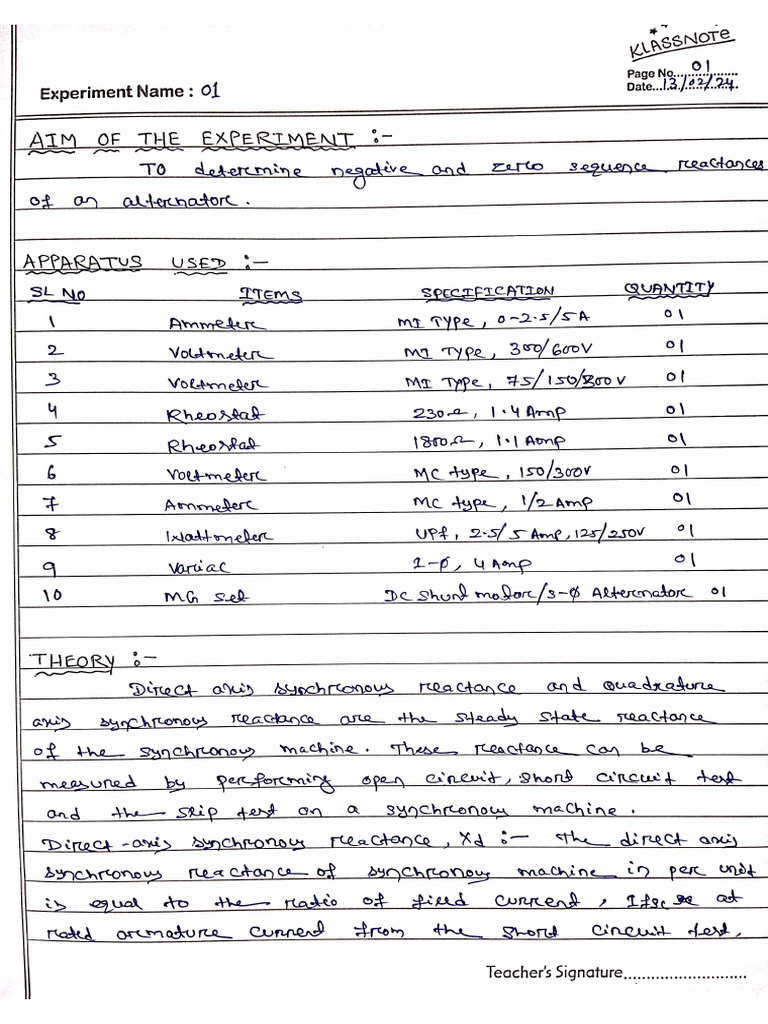 KLASSNOTE
Page No. 01
Date 13/02/24
Experiment Name : 01
AIM OF THE EXPERIMENT :-
TO determine negative and zero sequence reactances
of an alternator.
APPARATUS USED :-
SL NO ITEMS SPECIFICATION QUANTITY
1 Ammeter MI TYPE, 0-2.5/5A 01
2 Voltmeter MI TYPE, 300/600V 01
3 Voltmeter MI TYPE, 75/150/300V 01
4 Rheostat 230Ω, 1.4 Amp 01
5 Rheostat 1800Ω, 1.1 Amp 01
6 Voltmeter MC type, 150/300V 01
7 Ammeter MC type, 1/2 Amp 01
8 Wattmeter UPf, 2.5/5 Amp, 125/250V 01
9 Variac 1-Φ, 4 Amp 01
10 MG set DC Shunt motor/3-Φ Alternator 01
THEORY :-
Direct axis synchronous reactance and quadrature
axis synchronous reactance are the steady state reactance
of the synchronous machine. These reactance can be
measured by performing open circuit, short circuit test
and the slip test on a synchronous machine.
Direct-axis synchronous reactance, Xd :- the direct axis
synchronous reactance of synchronous machine in per unit
is equal to the ratio of field current, Ifsc at
rated armature current from the short circuit test,
Teacher's Signature